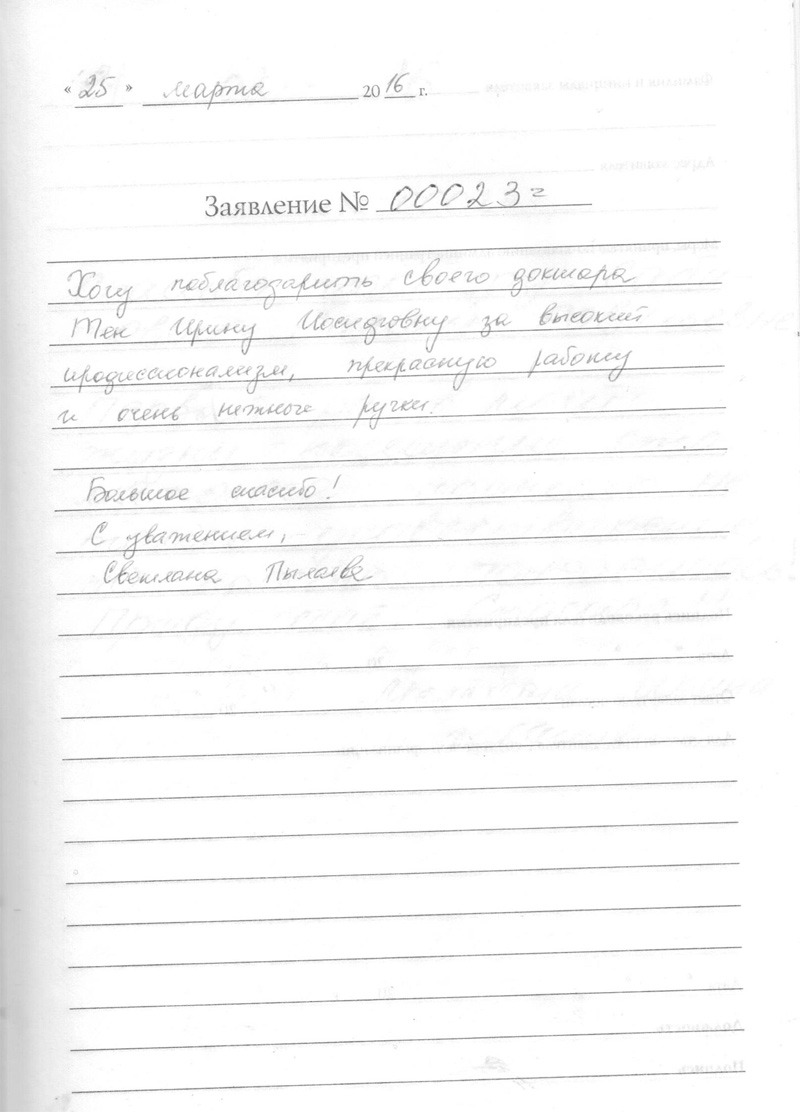 « 25 » марта 2016 г.
Заявление № 00023=
Хочу поблагодарить своего доктора
Тен Ирину Иосифовну за высокий
профессионализм, прекрасную работу
и очень нежные ручки.
Большое спасибо!
С уважением,
Светлана